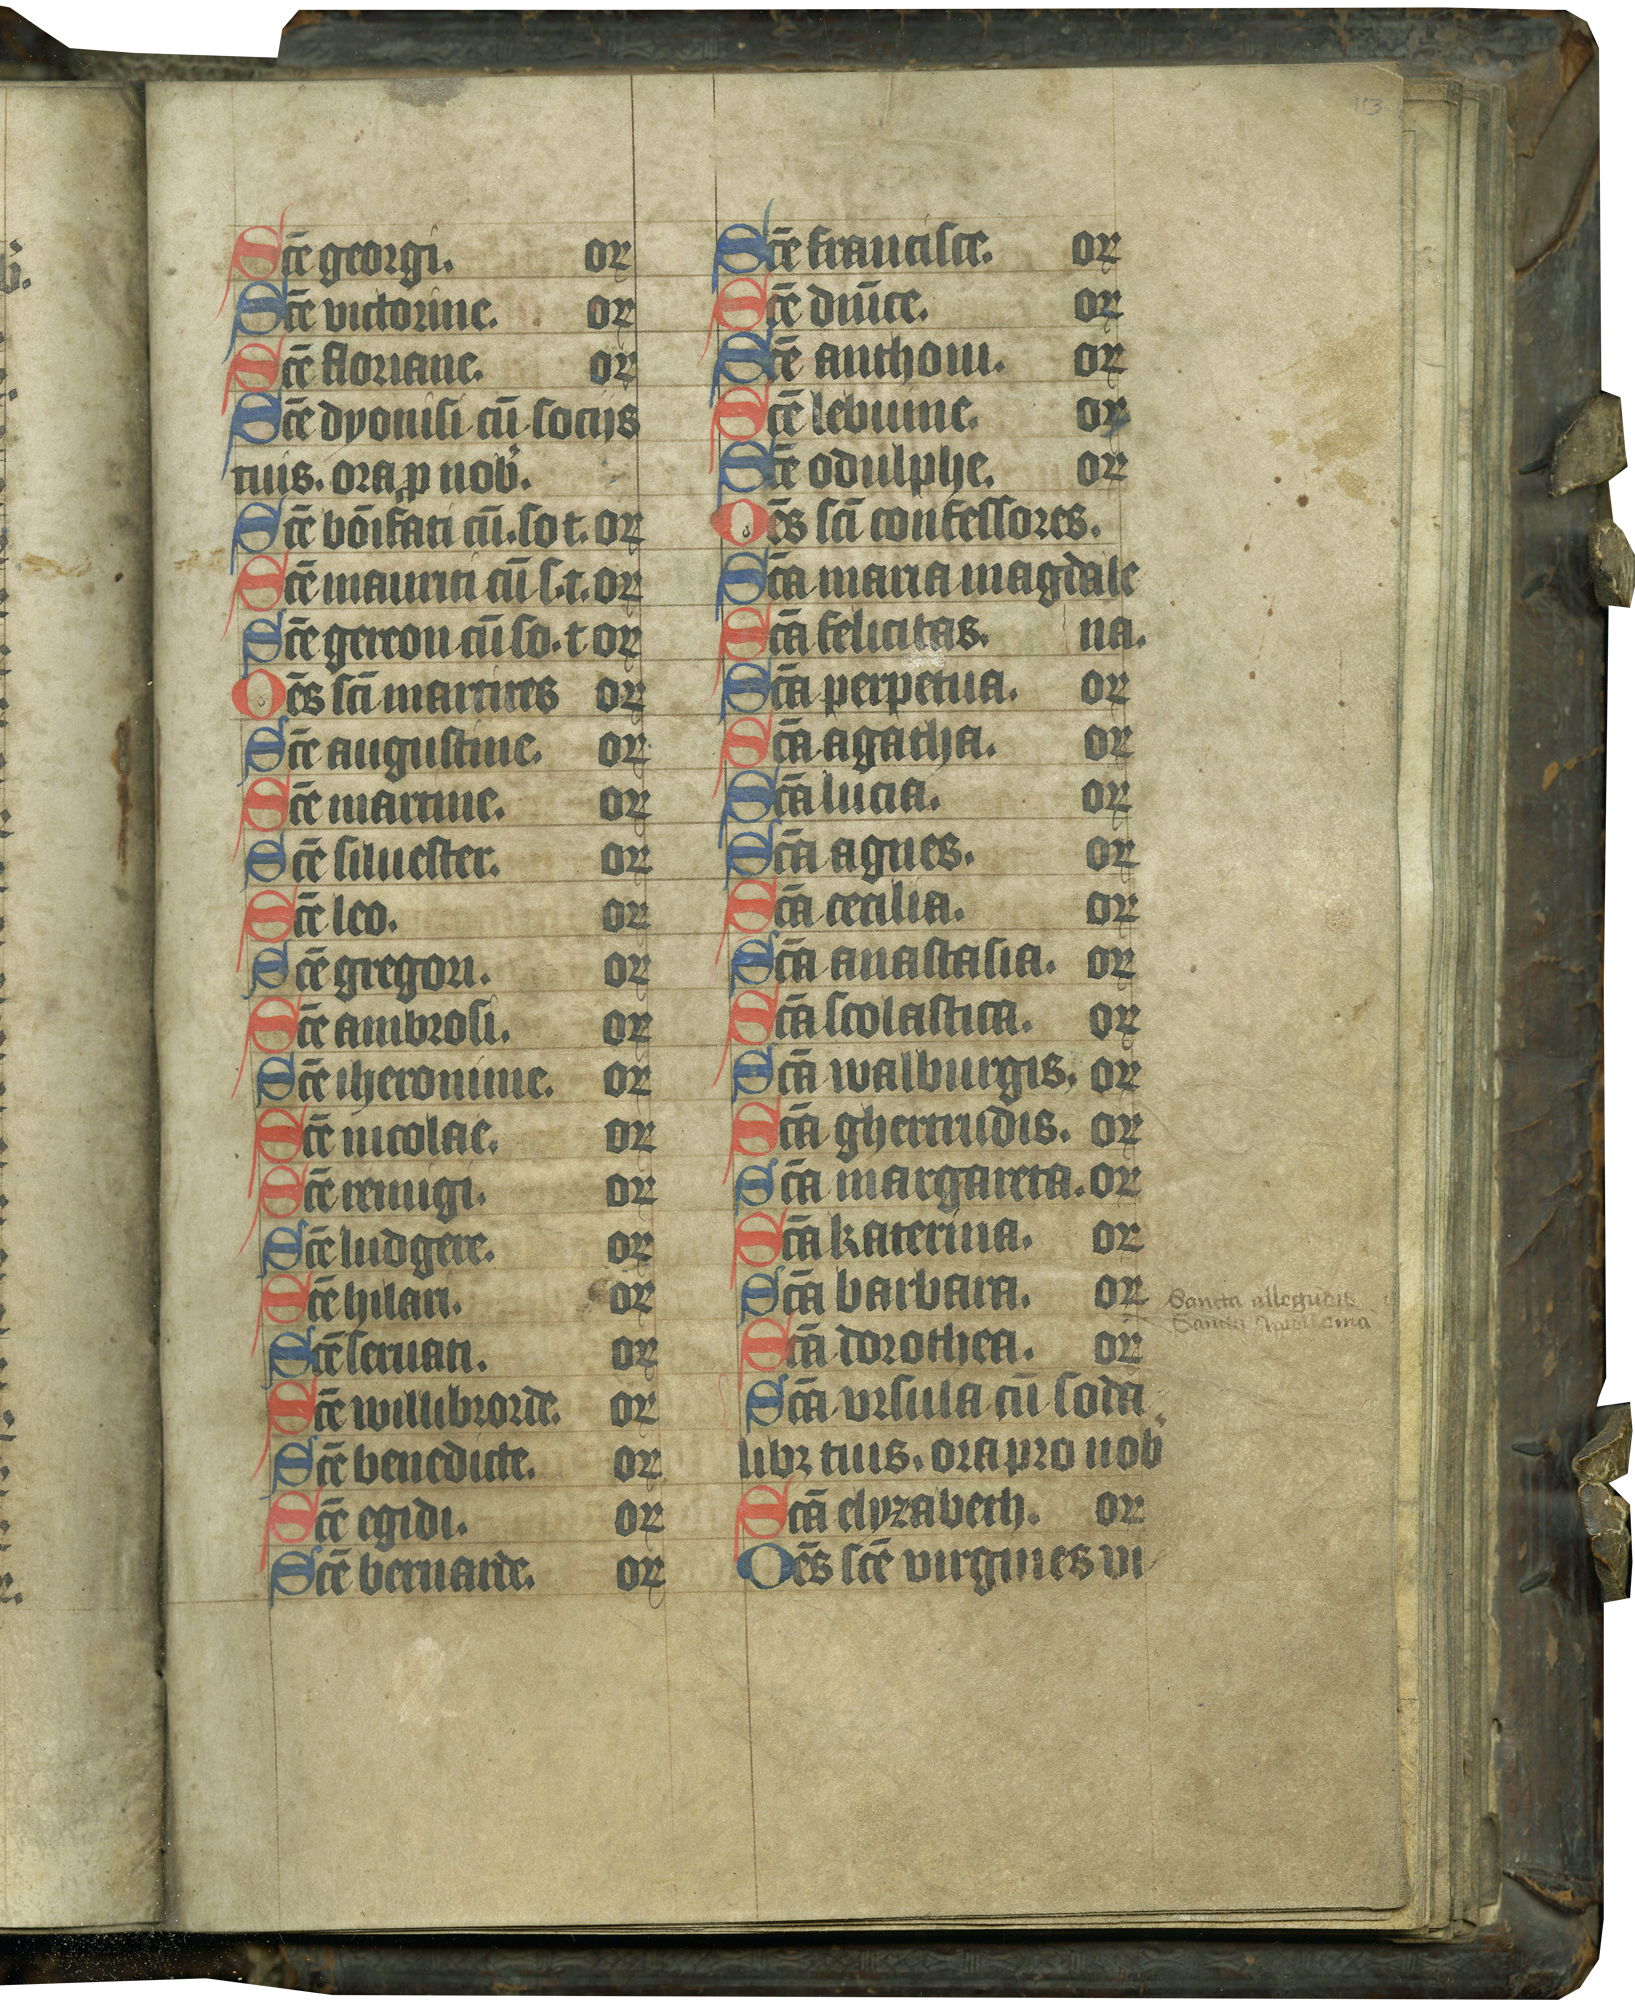 113
Scē georgi. or
Scē victorine. or
Scē floriane. or
Scē dyonisi cū socijs
tuis. ora p nob.
Scē bōifati cū. so t. or
Scē mauriti cū s. t. or
Scē gereon cū so. t or
Oēs scī martires or
Scē augustine. or
Scē martine. or
Scē siluester. or
Scē leo. or
Scē gregori. or
Scē ambrosi. or
Scē iheronime. or
Scē nicolae. or
Scē remigi. or
Scē ludgere. or
Scē hilari. or
Scē seruati. or
Scē willibrorde. or
Scē benedicte. or
Scē egidi. or
Scē bernarde. or
Scē francisce. or
Scē dnīce. or
Scē anthoni. or
Scē lebuine. or
Scē odulphe. or
Oēs scī confessores.
Scā maria magdale
Scā felicitas. na.
Scā perpetua. or
Scā agatha. or
Scā lucia. or
Scā agnes. or
Scā cecilia. or
Scā anastasia. or
Scā scolastica. or
Scā walburgis. or
Scā ghertrudis. or
Scā margareta. or
Scā katerina. or
Scā barbara. or
Scā dorothea. or
Scā vrsula cū soda
libz tuis. ora pro nob
Scā elyzabeth. or
Oēs scē virgines vi
Sancta
Sancta